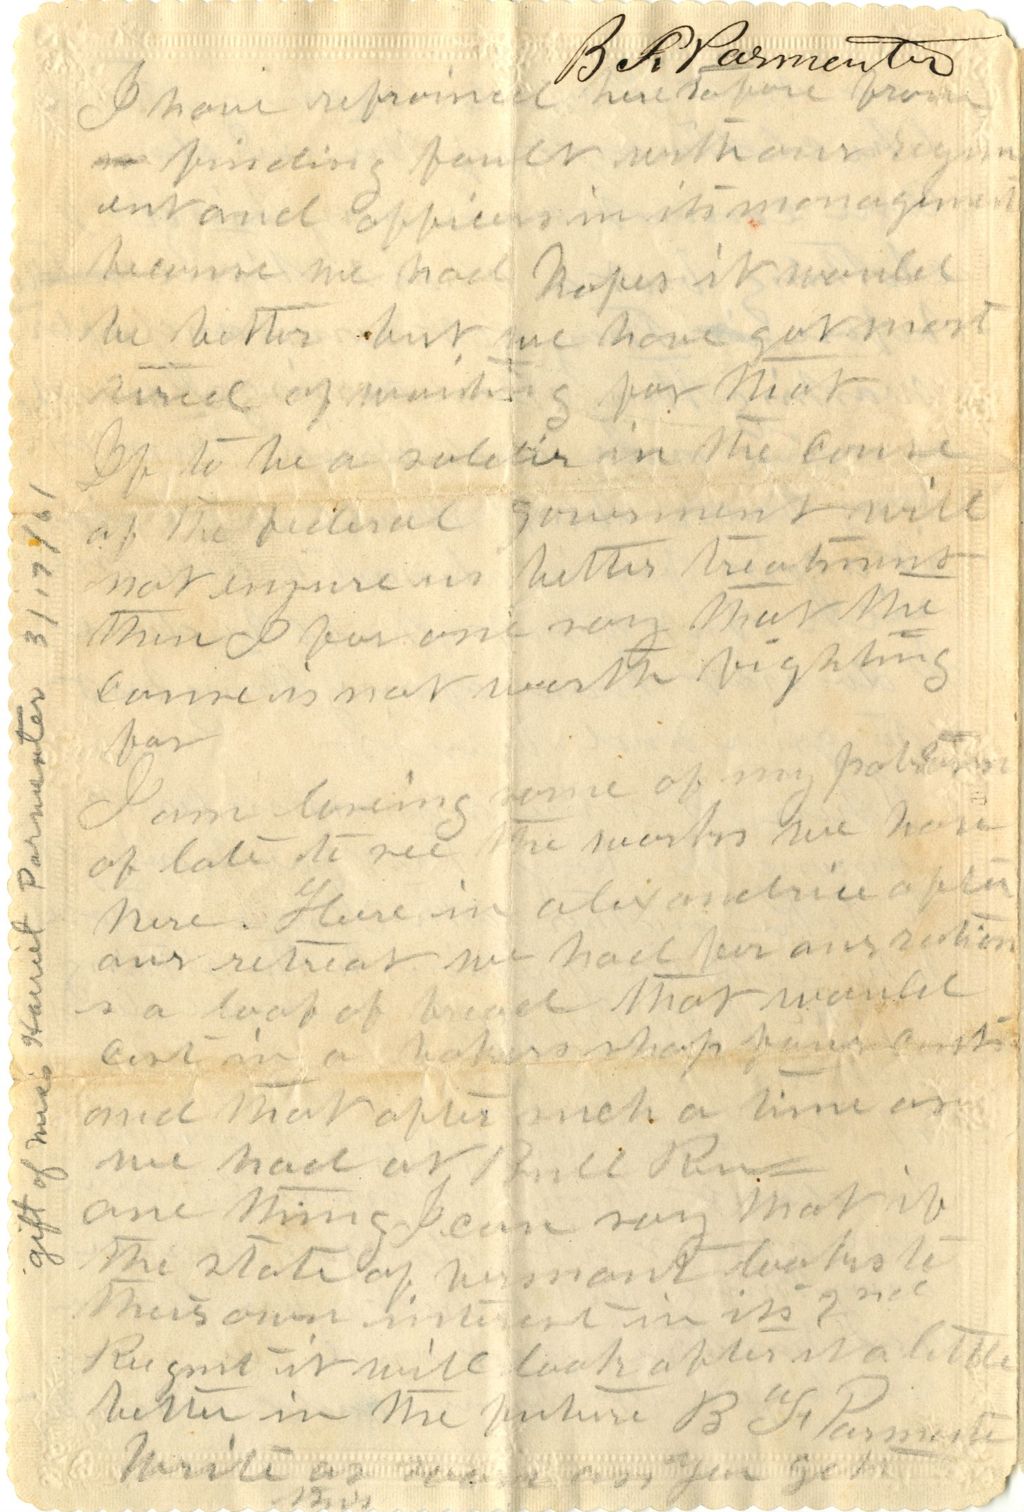 B F Parmenter
I have refrained heretofore from
finding fault with our regim
ent and officers in its management
because we had hopes it would
be better but we have got most
tired of waiting for that
If to be a soldier in the cause
of the federal government will
not ensure us better treatment
then I for one say that the
cause is not worth fighting
for
I am loseing some of my patriotism
of late to see the works we have
here. Here in alixandrice after
our retreat we had for our rations
a loaf of bread that would
cost in a bakers shop four cents
and that after such a time as
we had at Bull Run
one thing I can say that if
the state of vermont looks to
their own interest in its 2nd
Regmt it will look after it a little
better in the future B F Parmenter
Write as soon as you get
this
gift of Mrs Harriet Parmenter 3/17/61